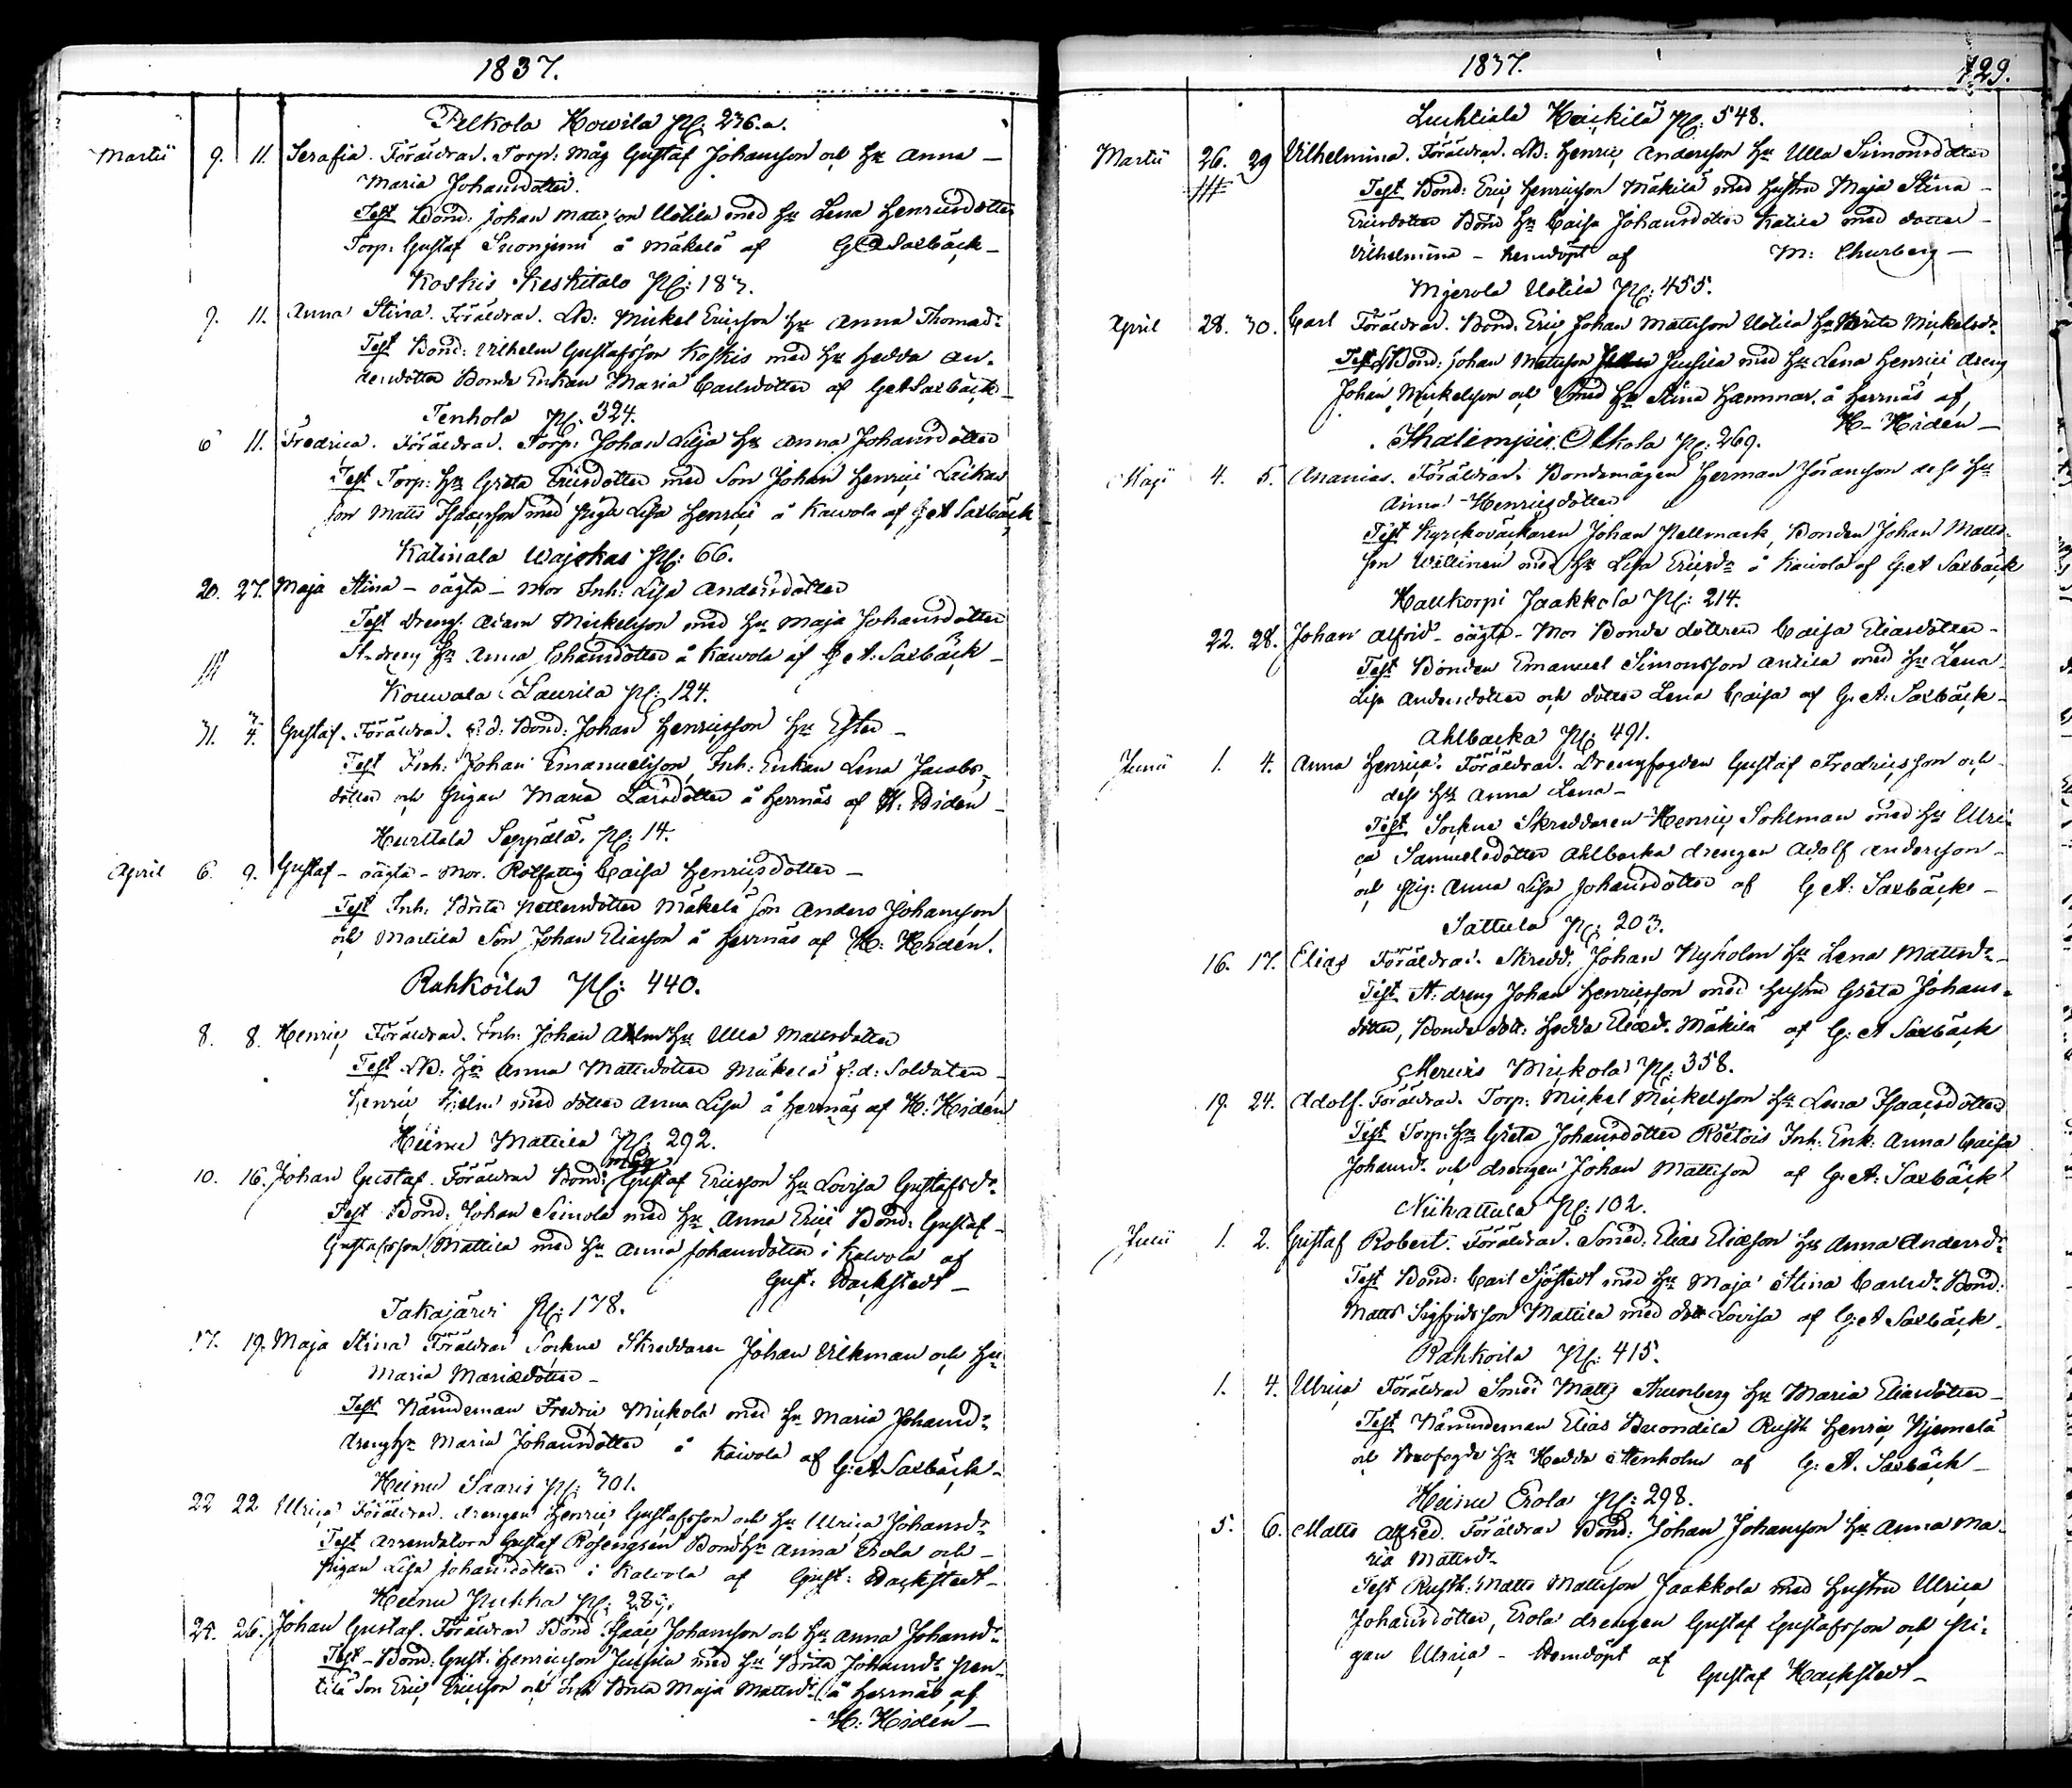 1837.
Pelkola Howila N: 236.a.
Martii 9. 11. Serafia. Föräldrar. Torp: måg Gustaf Johansson och Hu Anna
Maria Johansdotter.
Test Bond: Johan Matsson Uotila med Hu Lena Henricsdotter
Torp: Gustaf Suonjemi å Mäkelä af G A Saxbäck
Koskis Keskitalo N: 183.
9. 11. Anna Stina. Föräldrar. LB: Mickel Ericsson Hu Anna Thomasdr
Test Bond: Vilhelm Gustafsson Koskis med Hu Hedda An-
dersdotter Bonde Enkan Maria Carlsdotter af G A Saxbäck
Tenhola N: 324.
6 11. Fredrica. Föräldrar. Torp: Johan Lilja Hu Anna Johansdotter
Test Torp: Hu Greta Ericsdotter med Son Johan Henrici
Son Matts Isaacsson med Pigan Lisa Henrici å Kaivola af G A Saxbäck
Katinala Wajokas N: 66.
20. 27. Maja Stina - oägta - Mor Inh: Lisa Andersdotter
Test Dreng: Adam Mickelsson med Hu Maja Johansdotter
St-dreng Hu Anna Johansdotter å Kaivola af G A: Saxbäck
Kouwala Laurila N: 124.
31. 3/4. Gustaf. Föräldrar. f.d. Bond: Johan Henricsson Hu Ester
Test Inh: Johan Emanuelsson, Inh: Enkan Lena Jacobs-
dotter och Pigan Maria Larsdotter å Herrnäs af H. Hidén
Hurttala Seppälä. N: 14.
April 6. 9. Gustaf - oägta - Mor. Rotfattig Caisa Henricsdotter
Test Inh: Brita Pettersdotter Mäkelä Son Anders Johansson
och Mattila Son Johan Eliasson å Herrnäs af H: Hidén.
Rahkoila N: 440.
8. 8. Henric, Föräldrar. Inh: Johan Hu Ulla Mattsdotter
Test LB: Hu Anna Mattsdotter Mäkelä f: d: Soldaten
Henric med dotter Anna Lisa å Herrnäs af H: Hidén
Heinu Mattila N: 292.
måg
10. 16. Johan Gustaf. Föräldrar Bond: Gustaf Ericsson Hu Lovisa Gustafsdr
Test Bond: Johan Simola med Hu Anna Erici Bond: Gustaf
Gustafsson Mattila med Hu Anna Johansdotter i Kalvola af
Gust: Hackstedt
Takajärvi N: 178.
17. 19. Maja Stina Föräldrar Sockne Skreddaren Johan Vikman och Hu
Maria Mariædotter
Test Nämdeman Fredric Mickola med Hu Maria Johansdr
dreng Hu Maria Johansdotter å Kaivola af G: A Saxbäck
Heinu Saaris N: 301.
22 22 Ulrica Föräldrar. drengen Henric Gustafsson och Hu Ulrica Johansdr
Test Arrendatorn Gustaf Rosengren Bond Hu Anna Erola och
Pigan Lisa Johansdotter i Kalvola af Gust: Hackstedt
Heinu Pukka N: 285.
24. 26. Johan Gustaf. Föräldrar Bond Isaac Johansson och Hu Anna Johansdr
Test - Bond: Gust: Henricsson Jussila med Hu Brita Johansdr Pen-
tilä Son Eric Ericsson och Inh Brita Maja Mattsdr å Herrnäs af
H: Hidén
1837.
129.
Luhtiala Heikilä N: 548.
Martii 26. 29 Vilhelmina. Föräldrar. LB: Henric Andersson Hu Ulla Simonsdotter
Test Bond: Eric Henricsson Mäkilä med Hustru Maja Stina
Ericsdotter Bond Hu Caisa Johansdotter Katila med dotter
Vilhelmina - hemdöpt af M: Churberg
Mjerola Uotila N: 455.
April 28. 30. Carl Föräldrar. Bond: Eric Johan Mattsson Uotila Hu Brita Mickelsdr
Test Bond: Johan Mattsson Jussila med Hu Lena Henrici dreng
Johan Mickelsson och Smed Hu Stina Hammar. å Herrnäs af
H. Hidén
Ihalempis Ollkola N: 269.
Maji 4. 5. Ananias. Föräldrar. Bondemågen Herman Göransson dess Hu
Anna Henricsdotter
Test Kyrckoväcktaren Johan Hellmark, Bonden Johan Matts-
son Willinen med Hu Lisa Ericsdr å Kaivola af G: A Saxbäck
Hallkorpi Jaakkola N: 214.
22. 28. Johan Alfrid - oägta - Mor Bonde dottren Caisa Eliasdotter
Test Bonden Emanuel Simonsson Antila med Hu Lena
Lisa Andersdotter och dotter Lena Caisa af G: A: Saxbäck
Ahlbacka N: 491.
Junii 1. 4. Anna Henrica. Föräldrar. Drengfogden Gustaf Fredricsson och
dess Hu Anna Lena
Test Sockne Skreddaren Henric Sohlman med Hu Ulri-
ca Samuelsdotter Ahlbacka drengen Adolf Andersson
och Pig: Anna Lisa Johansdotter af G A: Saxbäck
Sattula N: 203.
16. 17. Elias Föräldrar. Skredd: Johan Nyholm Hu Lena Mattsdr
Test St: dreng Johan Henricsson med Hustru Greta Johans-
dotter, Bonde dott: Hedda Eliædr Mäkilä af G: A Saxbäck
Merwis Mickola N: 358.
19. 24. Adolf. Föräldrar. Torp: Mickel Mickelsson Hu Lena Isaacsdotter
Test Torp: Hu Greta Johansdotter Inh: Enk: Anna Caisa
Johansdr och drengen Johan Mattsson af G: A: Saxbäck
Niihattula N: 102.
Julii 1. 2. Gustaf Robert. Föräldrar. Smed: Elias Eliæson Hu Anna Andersdr
Test Bond: Carl Sjöstedt med Hu Maja Stina Carlsdr Bond:
Matts Sigfridsson Mattila med dott Lovisa af G: A Saxbäck
Rahkoila N: 415.
1. 4. Ulrica Föräldrar Smed Matts Thunberg Hu Maria Eliædotter
Test Nämndeman Elias Rusth Henric Njemelä
och Brofogde Hu Hedda Stenholm af G: A. Saxbäck
Heinu Erola N: 298.
5. 6. Matts Alfred. Föräldrar Bond: Johan Johansson Hu Anna Ma-
ria Mattsdr
Test Rusth: Matts Mattsson Jaakkola med Hustru Ulrica
Johansdotter, Erola drengen Gustaf Gustafsson och Pi-
gan Ulrica - Hemdöpt af
Gustaf Hackstedt